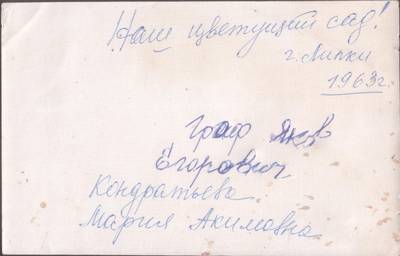 Наш цветущий сад!
г. Липки
1963г.
Граф Яков
Егорович
Кондратьева
Мария Акимовна